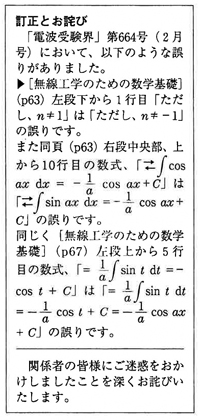 訂正とお詫び
「電波受験界」第664号（2月
号）において、以下のような誤
りがありました。
▶［無線工学のための数学基礎］
(p63) 左段下から1行目「ただ
し、n≠1」は「ただし、n≠－1」
の誤りです。
また同頁 (p63) 右段中央部、上
から10行目の数式、「⇄∫cos
ax dx ＝ －1/a cos ax+C」は
「⇄∫sin ax dx＝－1/a cos ax+
C」の誤りです。
同じく［無線工学のための数学
基礎］(p67) 左段上から5行
目の数式、「＝ 1/a∫sin t dt＝－
cos t ＋ C」は「＝ 1/a∫sin t dt
＝－1/a cos t ＋ C＝－1/a cos ax
＋ C」の誤りです。
関係者の皆様にご迷惑をおか
けしましたことを深くお詫びい
たします。